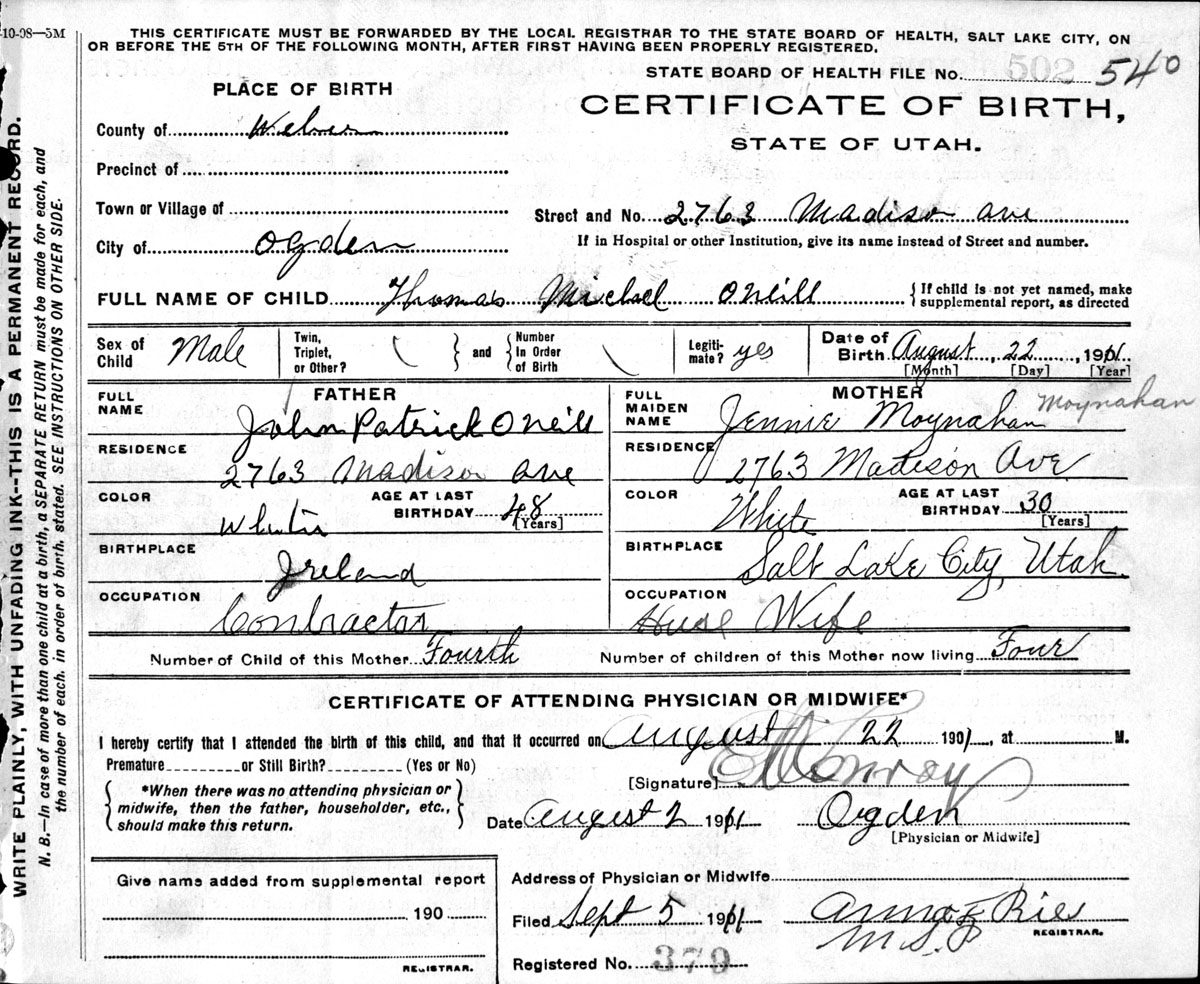 10-08—5M
THIS CERTIFICATE MUST BE FORWARDED BY THE LOCAL REGISTRAR TO THE STATE BOARD OF HEALTH, SALT LAKE CITY, ON
OR BEFORE THE 5TH OF THE FOLLOWING MONTH, AFTER FIRST HAVING BEEN PROPERLY REGISTERED.
STATE BOARD OF HEALTH FILE No. 502 540
PLACE OF BIRTH
CERTIFICATE OF BIRTH,
STATE OF UTAH.
County of Weber
Precinct of
Town or Village of
Street and No. 2763 Madison ave
City of Ogden
If in Hospital or other Institution, give its name instead of Street and number.
FULL NAME OF CHILD Thomas Michael ONeill { If child is not yet named, make
supplemental report, as directed
Sex of Child Male
Twin, Triplet, or Other? } and { Number In Order of Birth
Legiti-mate? yes
Date of Birth August, 22, 1911
[Month] [Day] [Year]
FATHER
FULL NAME John Patrick ONeill
RESIDENCE 2763 Madison ave
COLOR White
AGE AT LAST BIRTHDAY 48
[Years]
BIRTHPLACE Ireland
OCCUPATION Contractor
MOTHER
FULL MAIDEN NAME Jennie Moynahan Moynahan
RESIDENCE 2763 Madison Ave
COLOR White
AGE AT LAST BIRTHDAY 30
[Years]
BIRTHPLACE Salt Lake City, Utah
OCCUPATION House Wife
Number of Child of this Mother Fourth Number of children of this Mother now living Four
CERTIFICATE OF ATTENDING PHYSICIAN OR MIDWIFE*
I hereby certify that I attended the birth of this child, and that it occurred on August 22 1901, at M.
Premature or Still Birth? (Yes or No)
[Signature] Conroy
{ *When there was no attending physician or
midwife, then the father, householder, etc.,
should make this return. }
Date August 2 1911 Ogden
[Physician or Midwife]
Give name added from supplemental report
190
REGISTRAR.
Address of Physician or Midwife
Filed Sept 5 1911 Ries
REGISTRAR.
Registered No. 379
WRITE PLAINLY, WITH UNFADING INK--THIS IS A PERMANENT RECORD.
N. B.—In case of more than one child at a birth, a SEPARATE RETURN must be made for each, and
the number of each, in order of birth, stated. SEE INSTRUCTIONS ON OTHER SIDE.